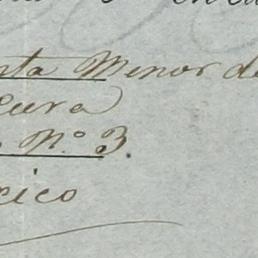 nta Menor de
cura
N.º 3.
xico